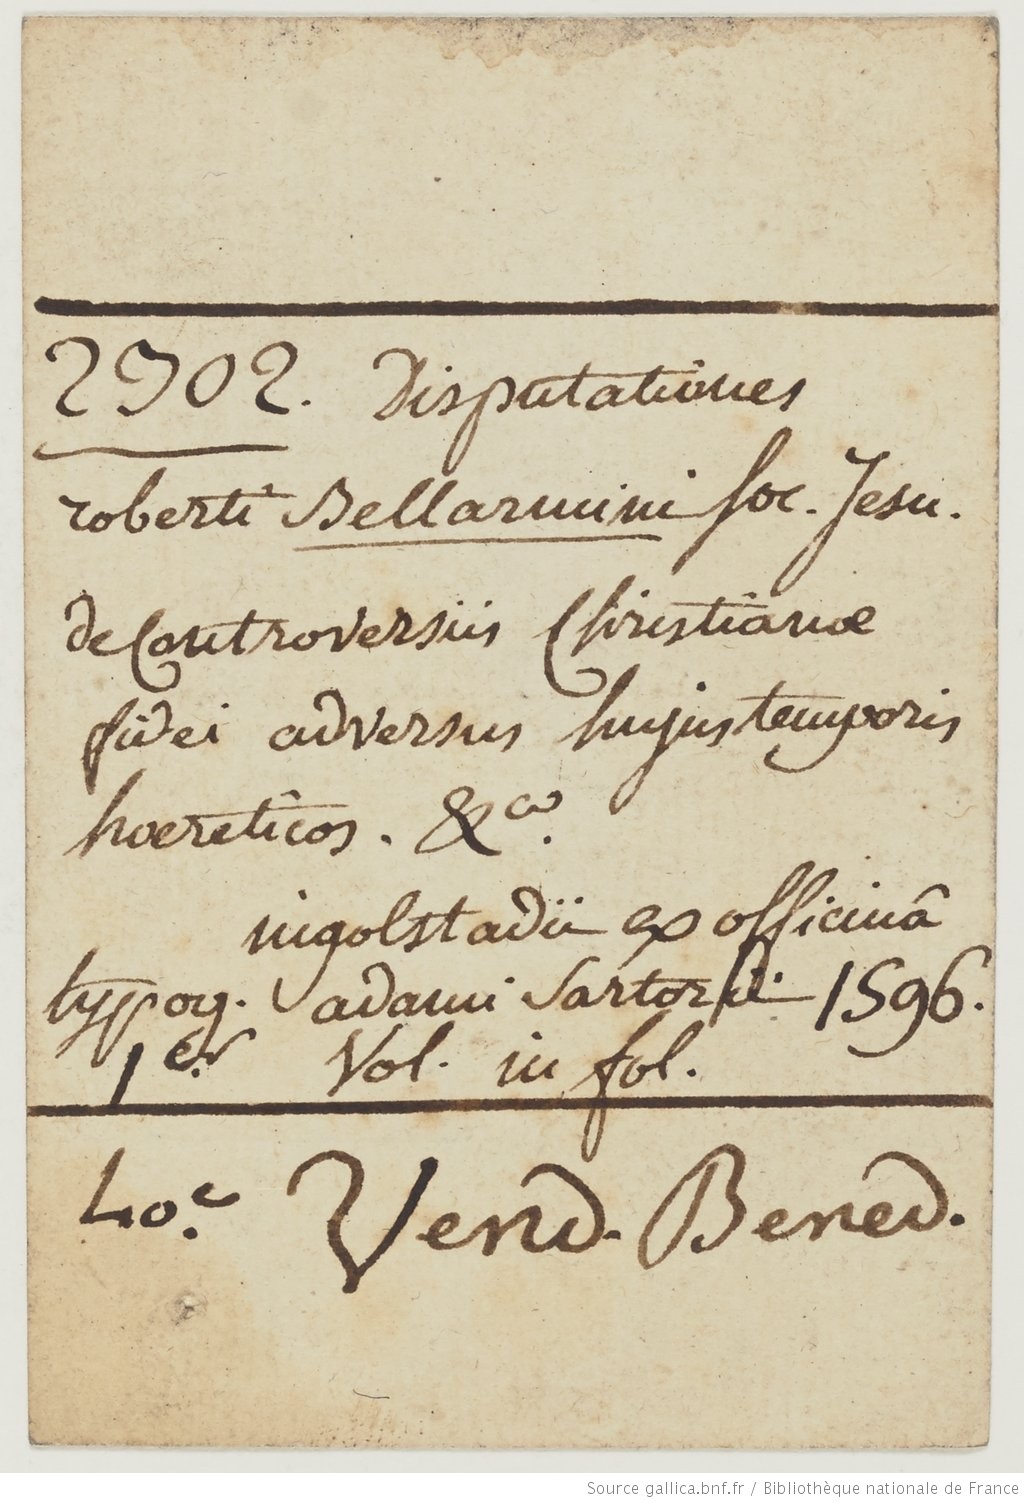 2302. Disputationes
roberti Bellarmini Soc. Jesu.
de Controversiis Christianæ
fidei adversus hujus temporis
hæreticos. &ca.
ingolstadii ex officinâ
typog. adami Sartorii 1596.
1er. Vol. in fol.
40e. Vend. Bened.
Source gallica.bnf.fr / Bibliothèque nationale de France